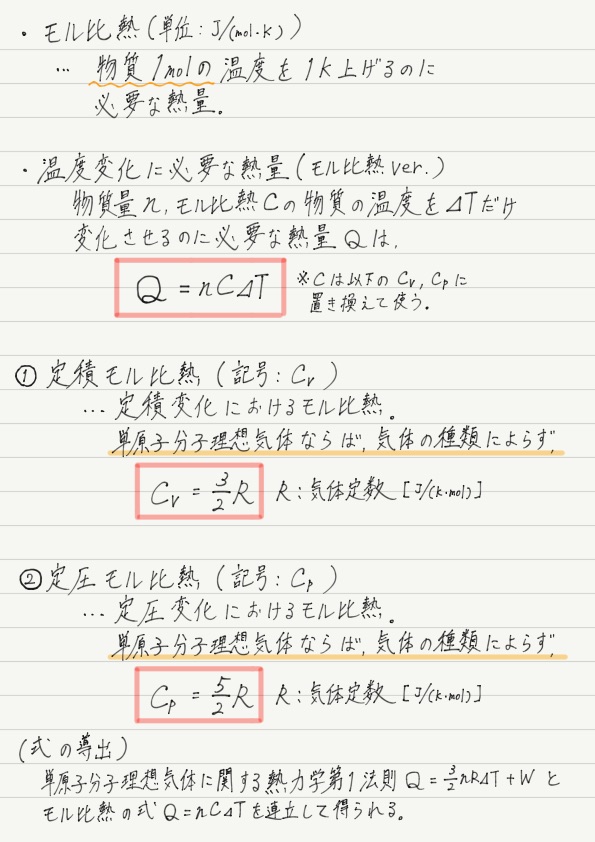 ・モル比熱(単位:J/(mol・k))
… 物質1molの温度を1k上げるのに
必要な熱量。
・温度変化に必要な熱量(モル比熱ver.)
物質量n,モル比熱Cの物質の温度をΔTだけ
変化させるのに必要な熱量Qは,
Q = nCΔT
※Cは以下のCv, Cpに
置き換えて使う。
① 定積モル比熱(記号:Cv)
… 定積変化におけるモル比熱。
単原子分子理想気体ならば,気体の種類によらず,
Cv = 3/2 R R:気体定数[J/(k・mol)]
② 定圧モル比熱(記号:Cp)
… 定圧変化におけるモル比熱。
単原子分子理想気体ならば,気体の種類によらず,
Cp = 5/2 R R:気体定数[J/(k・mol)]
(式の導出)
単原子分子理想気体に関する熱力学第1法則 Q = 3/2 nRΔT + W と
モル比熱の式 Q = nCΔT を連立して得られる。